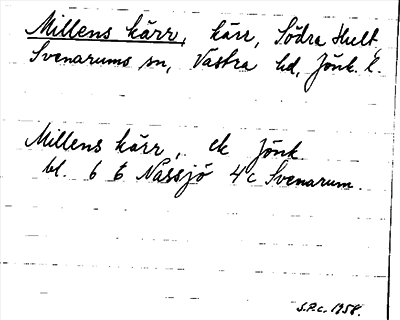 Millens kärr, kärr, Södra Hult,
Svenarums sn, Västra hd, Jönk. l.
Millens kärr, ek Jönk.
bl. 6 t Nässjö 4c Svenarum.
S.P.C. 1958.